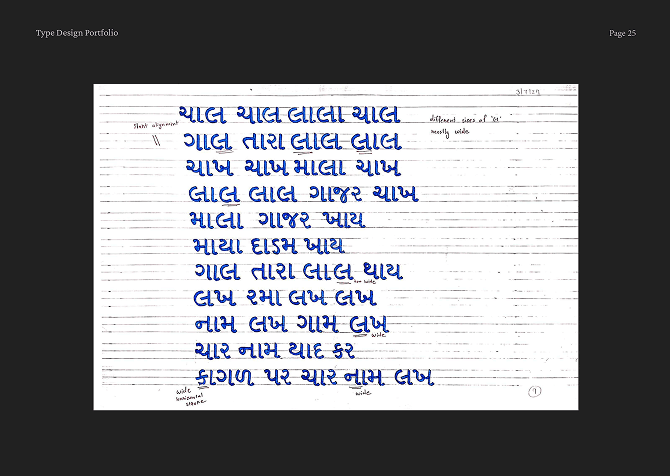 Type Design Portfolio
Page 25
3/7/24
ચાલ ચાલ લાલા ચાલ
different sizes of "લ"
mostly wide
Slant alignment
ગાલ તારા લાલ લાલ
ચાખ ચાખ માલા ચાખ
લાલ લાલ ગાજર ચાખ
માલા ગાજર ખાય
માયા દાડમ ખાય
ગાલ તારા લાલ થાય
too wide
લખ રમા લખ લખ
નામ લખ ગામ લખ
wide
ચાર નામ યાદ કર
કાગળ પર ચાર નામ લખ
wide
horizontal
stroke
wide
1